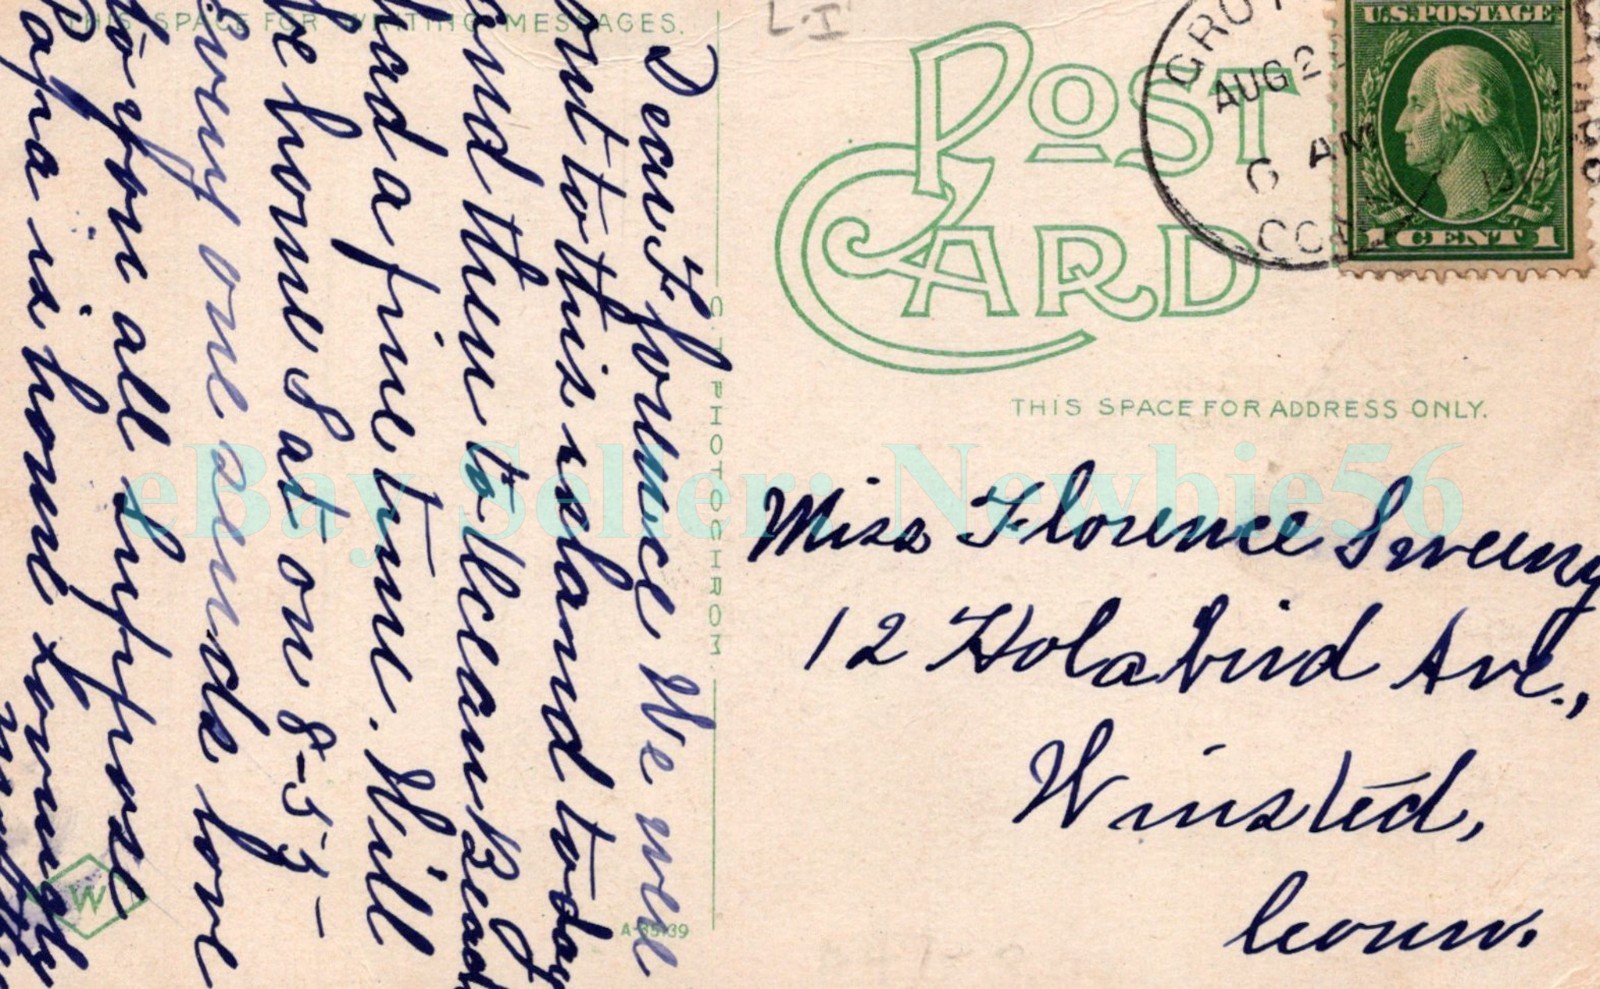 THIS SPACE FOR WRITING MESSAGES.
Dear Florence We were
out to this island today
and then to Ocean Beach
had a fine time. Will
be home Sat on 8-55-
Every one sends love
to you all. Suppose
Papa is home Lovingly
C.T. PHOTOCHROM
A-35139
W
L-I
POST CARD
GROT
AUG 2
6 AM
CONN
U.S. POSTAGE
1 CENT 1
THIS SPACE FOR ADDRESS ONLY.
Miss Florence Sweeny
12 Holabird Ave.,
Winsted,
Conn.
eBay Seller: Newbie56